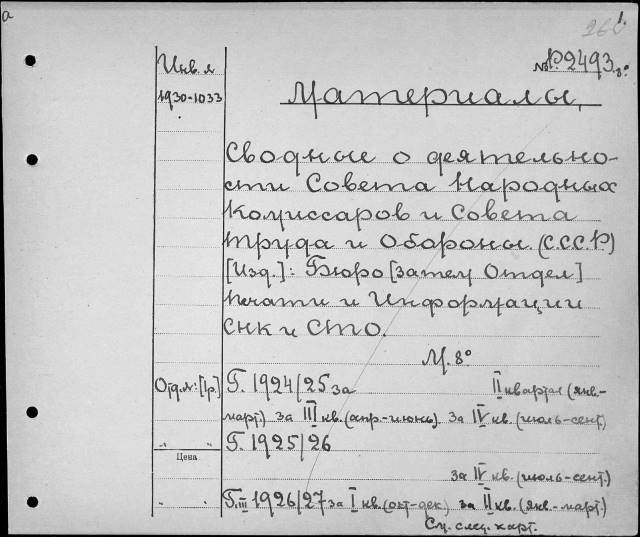 а
1.
260
Инв. л
№ Р.2493.8°
1930-1033
Материалы,
Сводные о деятельно-
сти Совета Народных
Комиссаров и Совета
Труда и Обороны. (С.С.С.Р)
[Изд.]: Бюро [затем Отдел]
Печати и Информации
СНК и СТО.
М. 8°
Отд. л: [1р.] Г. 1924/25 за II квартал (янв.-
март) за III кв. (апр.-июнь). за IV кв. (июль-сент)
„ „ Г. 1925/26
Цена
за IV кв. (июль-сент.)
„ „ Г. III 1926/27 за I кв. (окт-дек) за II кв. (янв.-март.)
См. след. карт.